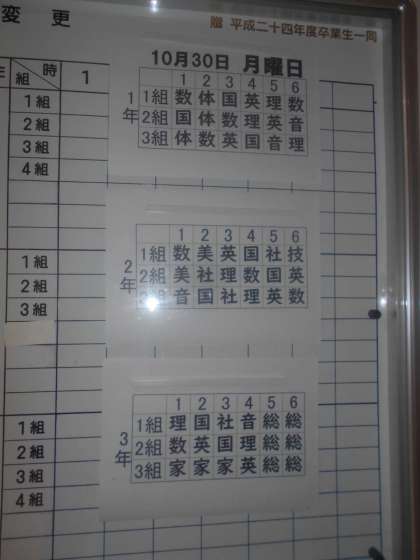 変更
贈 平成二十四年度卒業生一同
組 時 1
1組
2組
3組
4組
1組
2組
3組
1組
2組
3組
4組
10月30日 月曜日
1 2 3 4 5 6
1年
1組 数 体 国 英 理 数
2組 国 体 数 理 英 音
3組 体 数 英 国 音 理
1 2 3 4 5 6
2年
1組 数 美 英 国 社 技
2組 美 社 理 数 国 英
3組 音 国 社 理 英 数
1 2 3 4 5 6
3年
1組 理 国 社 音 総 総
2組 数 英 国 理 総 総
3組 家 家 家 英 総 総